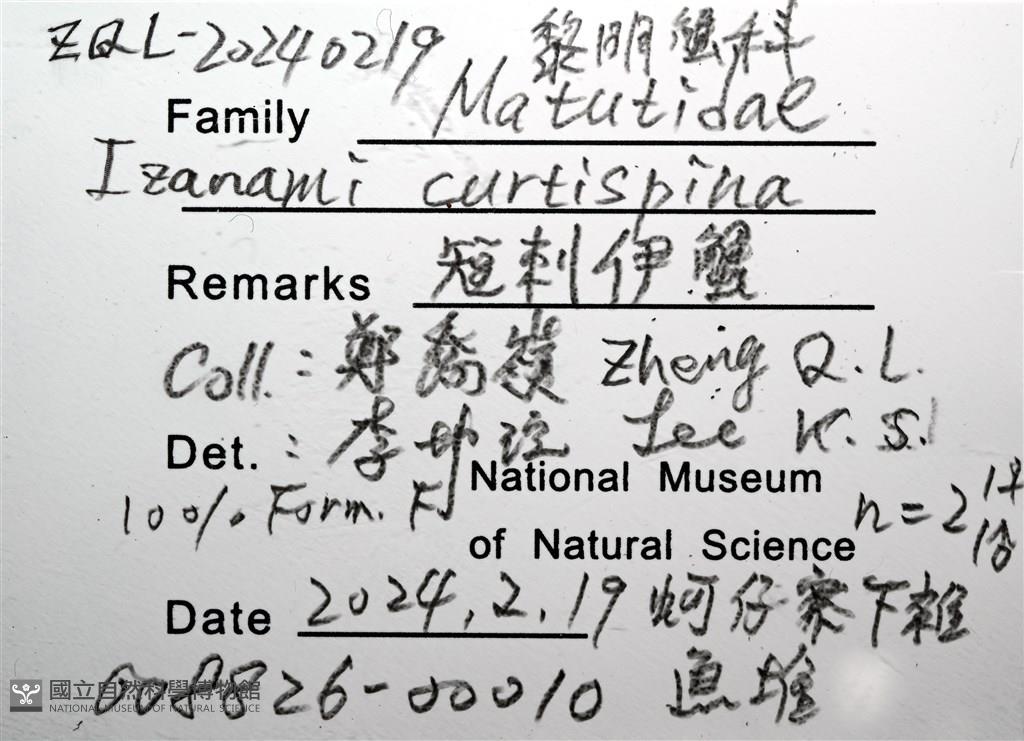 ZQL-20240219 黎明蟹科
Family Matutidae
Izanami curtispina
Remarks 短刺伊蟹
Coll.: 鄭喬嶺 Zheng Q.L.
Det.: 李坤瑄 Lee K.S.
National Museum
100% Form. F n=2 1♀
of Natural Science
Date 2024.2.19 蚵仔寮下雜
26-00010 魚堆
國立自然科學博物館
NATIONAL MUSEUM OF NATURAL SCIENCE